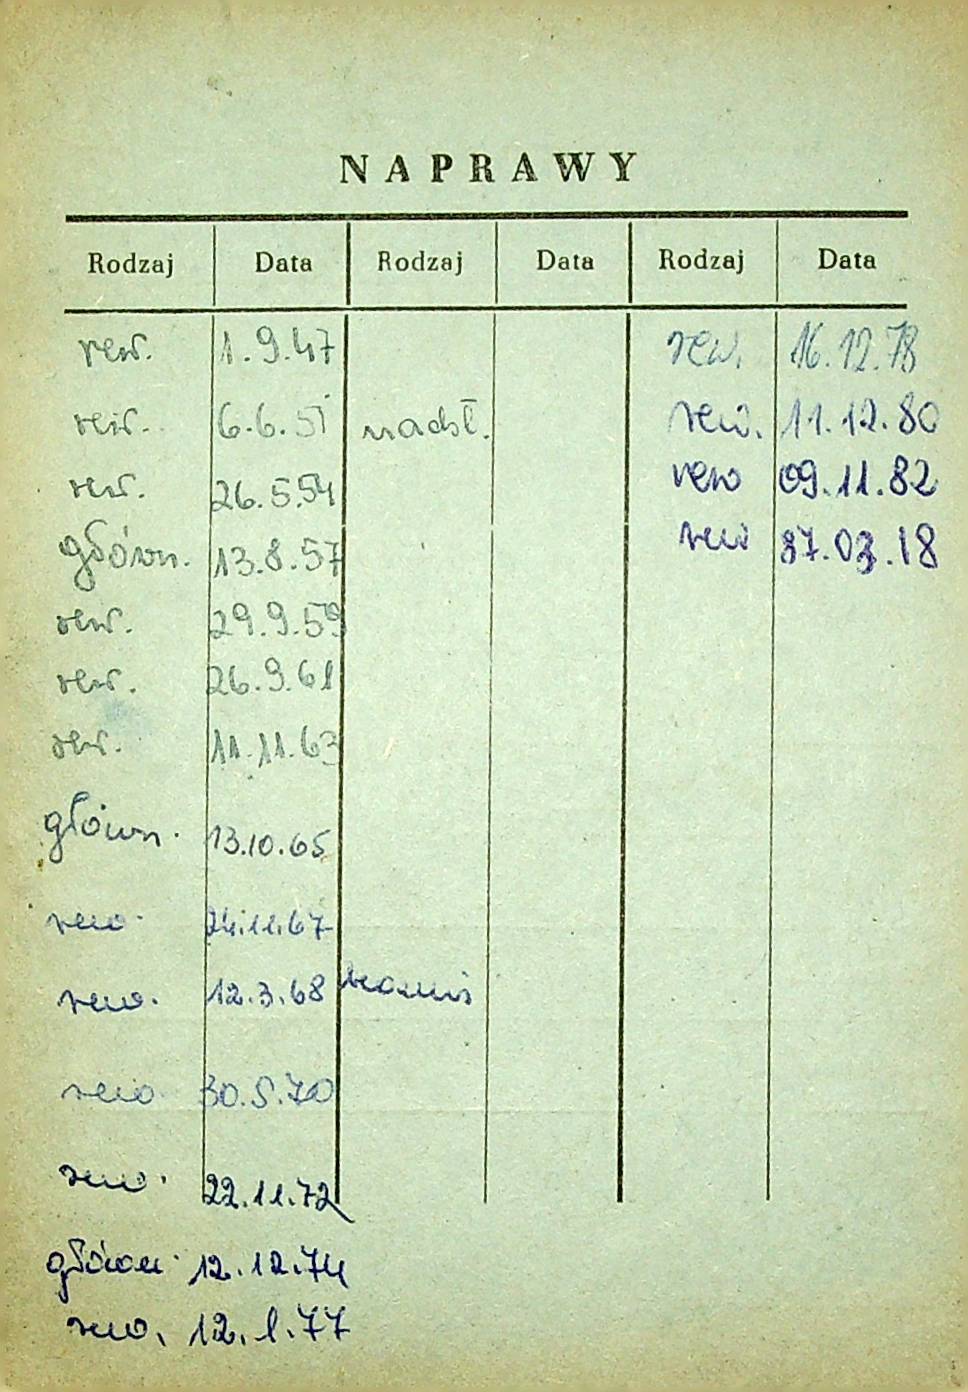 NAPRAWY
Rodzaj Data Rodzaj Data Rodzaj Data
rew. 1.9.47 rew. 16.12.78
rew. 6.6.51 nadst. rew. 11.12.80
rew. 26.5.54 rew 09.11.82
główn. 13.8.57 rew 87.03.18
rew. 29.9.59
rew. 26.9.61
rew. 11.11.63
główn. 13.10.65
rew. 24.11.67
rew. 12.3.68
rew 30.5.70
rew. 22.11.72
główn. 12.12.74
rew. 12.1.77